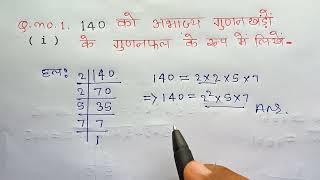 Q.no.1. 140 को अभाज्य गुणनखंडों
(i) के गुणनफल के रूप में लिखें-
हलः 2|140
2|70
5|35
7|7
1
140 = 2×2×5×7
=> 140 = 2²×5×7
Ans.